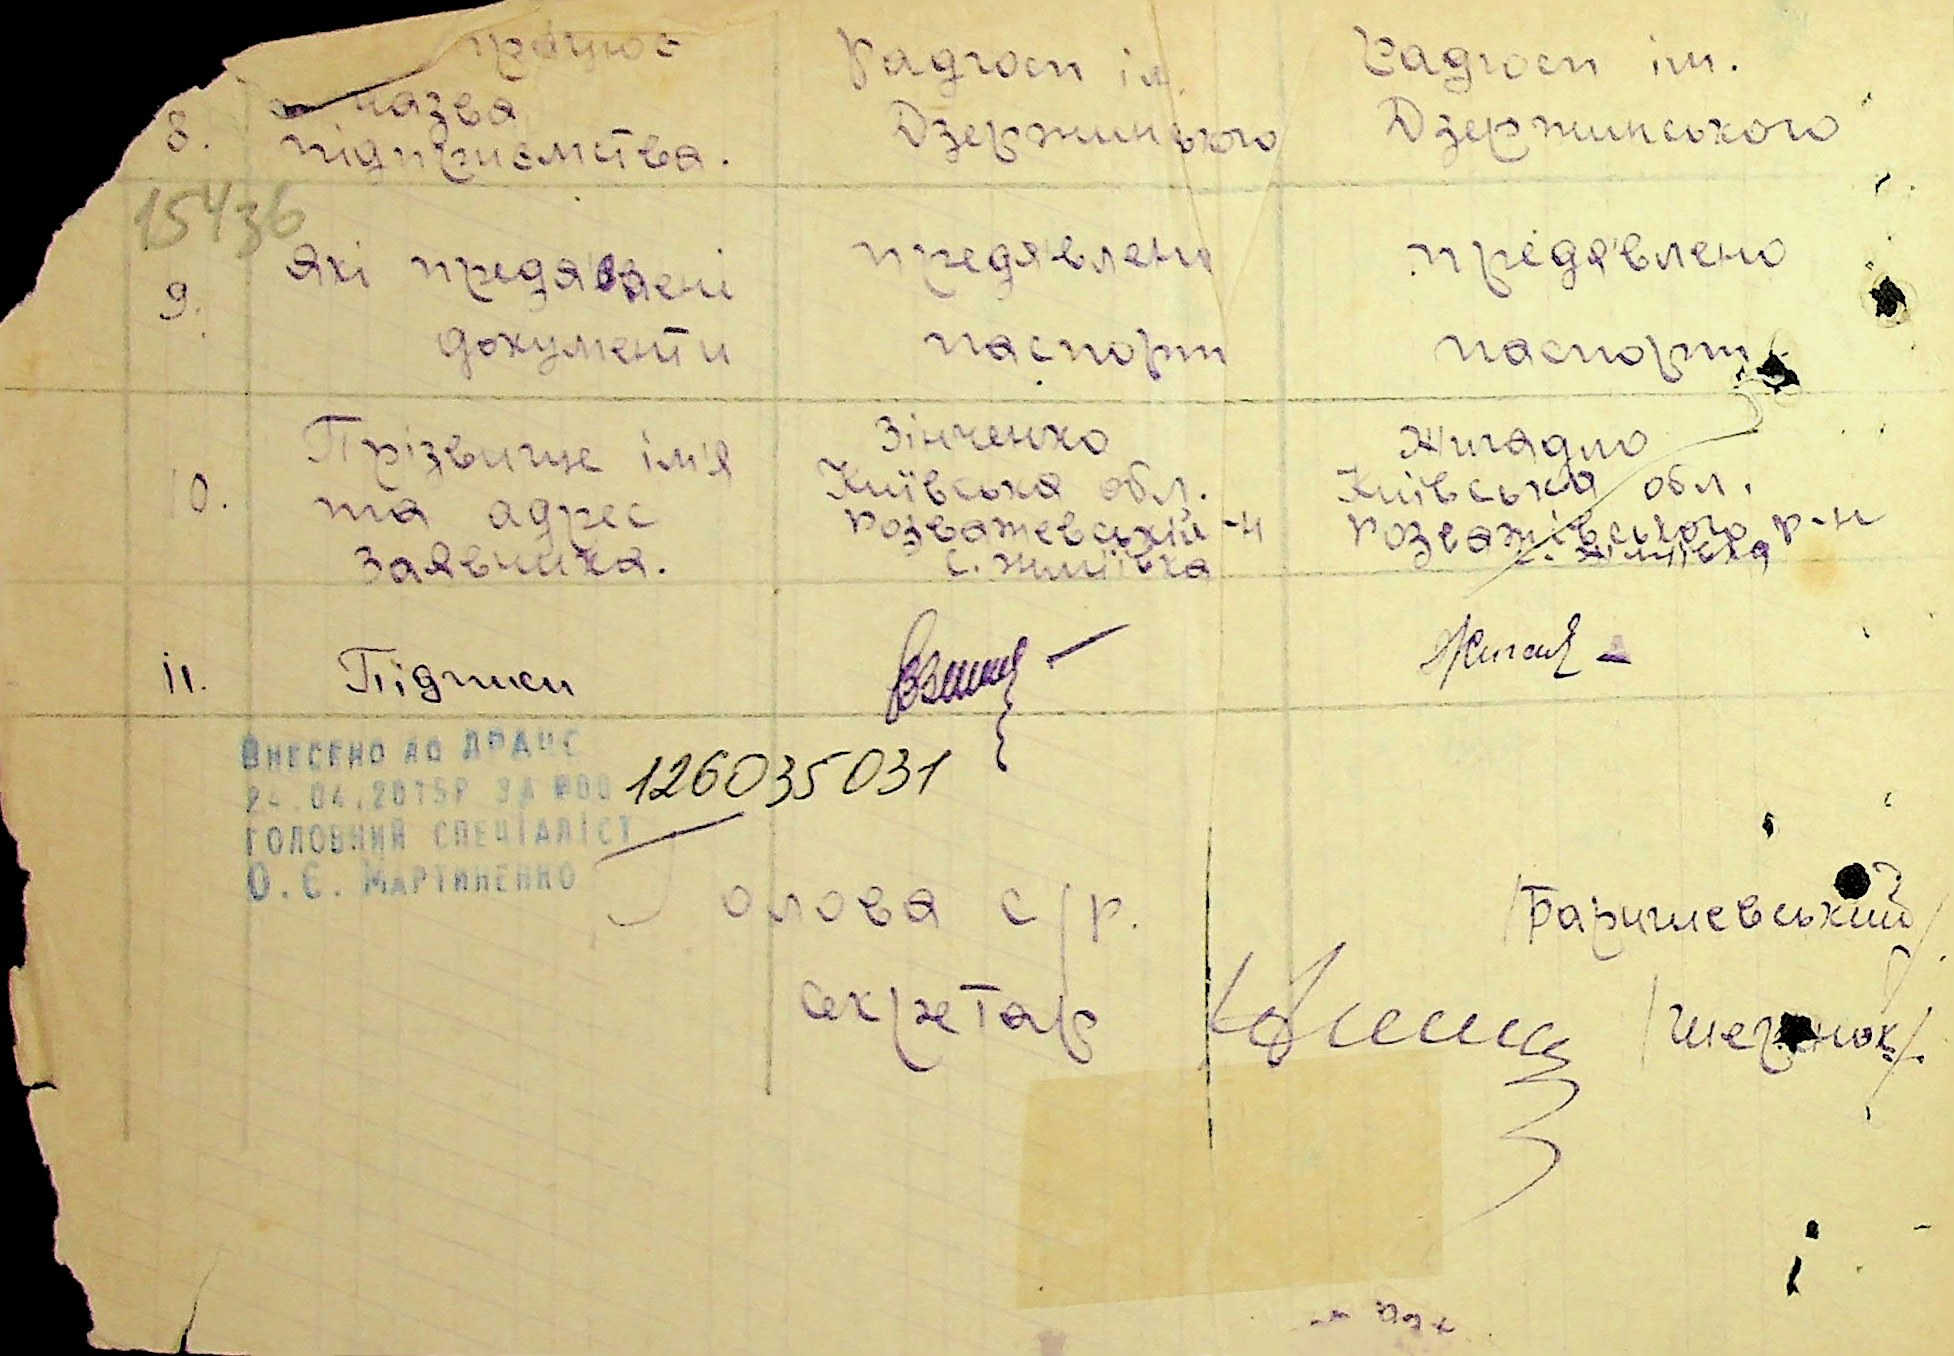 працює Радгосп ім. Радгосп ім.
назва Дзержинського Дзержинського
8. підприємства.
15436
Які предя'влені предя'влено предя'влено
9. документи паспорт паспорт
Прізвище ім'я Зінченко Жигадло
10. та адрес Київська обл. Київська обл.
Заявника. Розважевський р-н Розважівського р-н
с. Жміївка с. Жміївка
11. Підписи
Внесено до ДРАЦС
24.04.2015р за №00 126035031
головний спеціаліст
О.Є. Мартиненко
Голова с/р. /Баришевський/
секретар